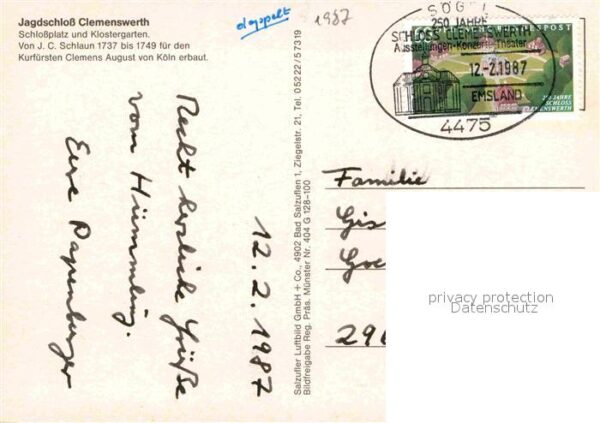 Jagdschloß Clemenswerth
Schloßplatz und Klostergarten.
Von J. C. Schlaun 1737 bis 1749 für den
Kurfürsten Clemens August von Köln erbaut.
doppelt
1987
Recht herzliche Grüße
vom Hümmling.
Eure Papenburger
12.2.1987
Salzufler Luftbild GmbH + Co., 4902 Bad Salzuflen 1, Ziegelstr. 21, Tel. 05222/57319
Bildfreigabe Reg. Präs. Münster Nr. 404 G 128-100
SÖGEL
250 JAHRE
SCHLOSS CLEMENSWERTH
Ausstellungen-Konzerte-Theater
12.-2.1987
EMSLAND
4475
250 JAHRE
SCHLOSS
CLEMENSWERTH
Familie
Gis
296
privacy protection
Datenschutz